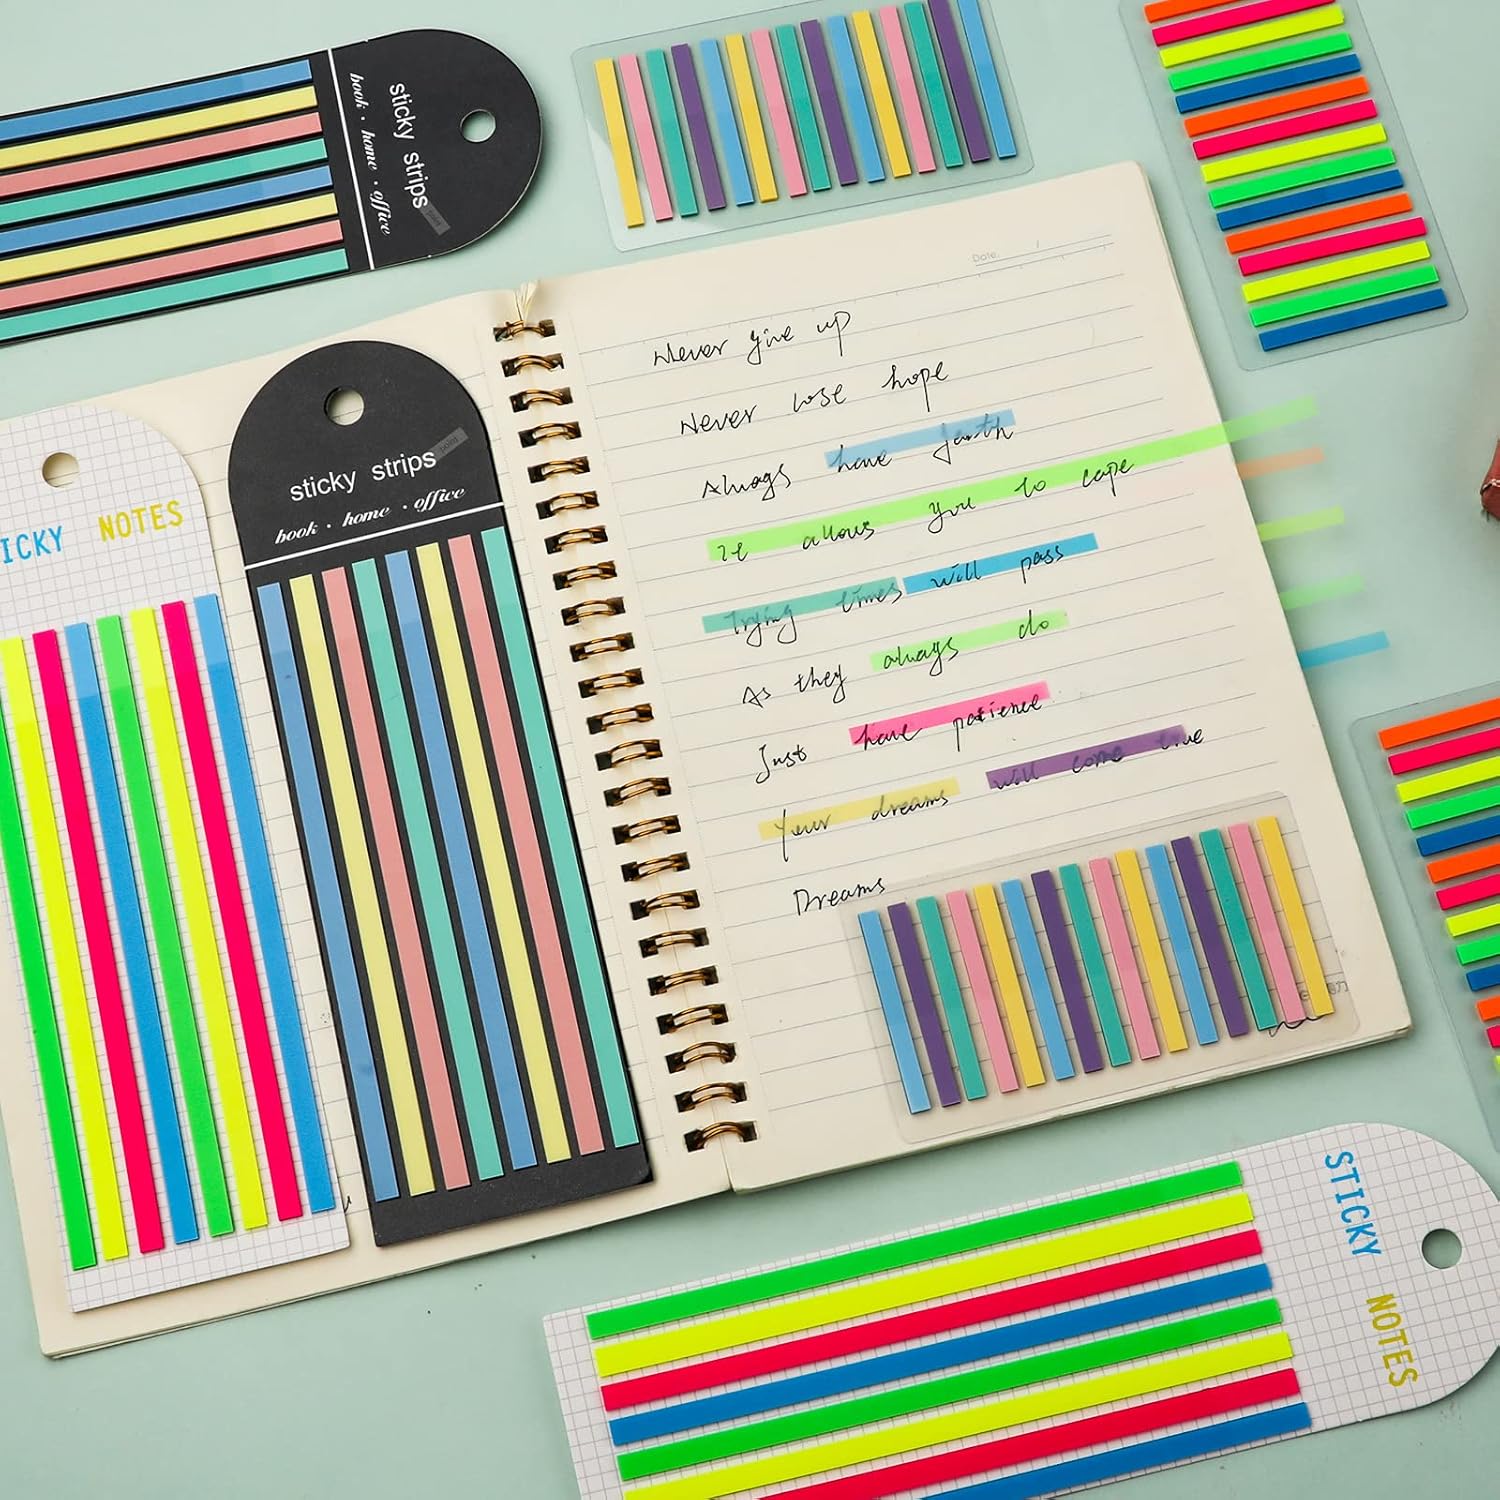 sticky strips
book · home · office
point
Date:
Never give up
Never lose hope
Always have faith
It allows you to cope
Trying times will pass
As they always do
Just have patience
Your dreams will come true
Dreams
sticky strips
point
book · home · office
ICKY NOTES
STICKY NOTES